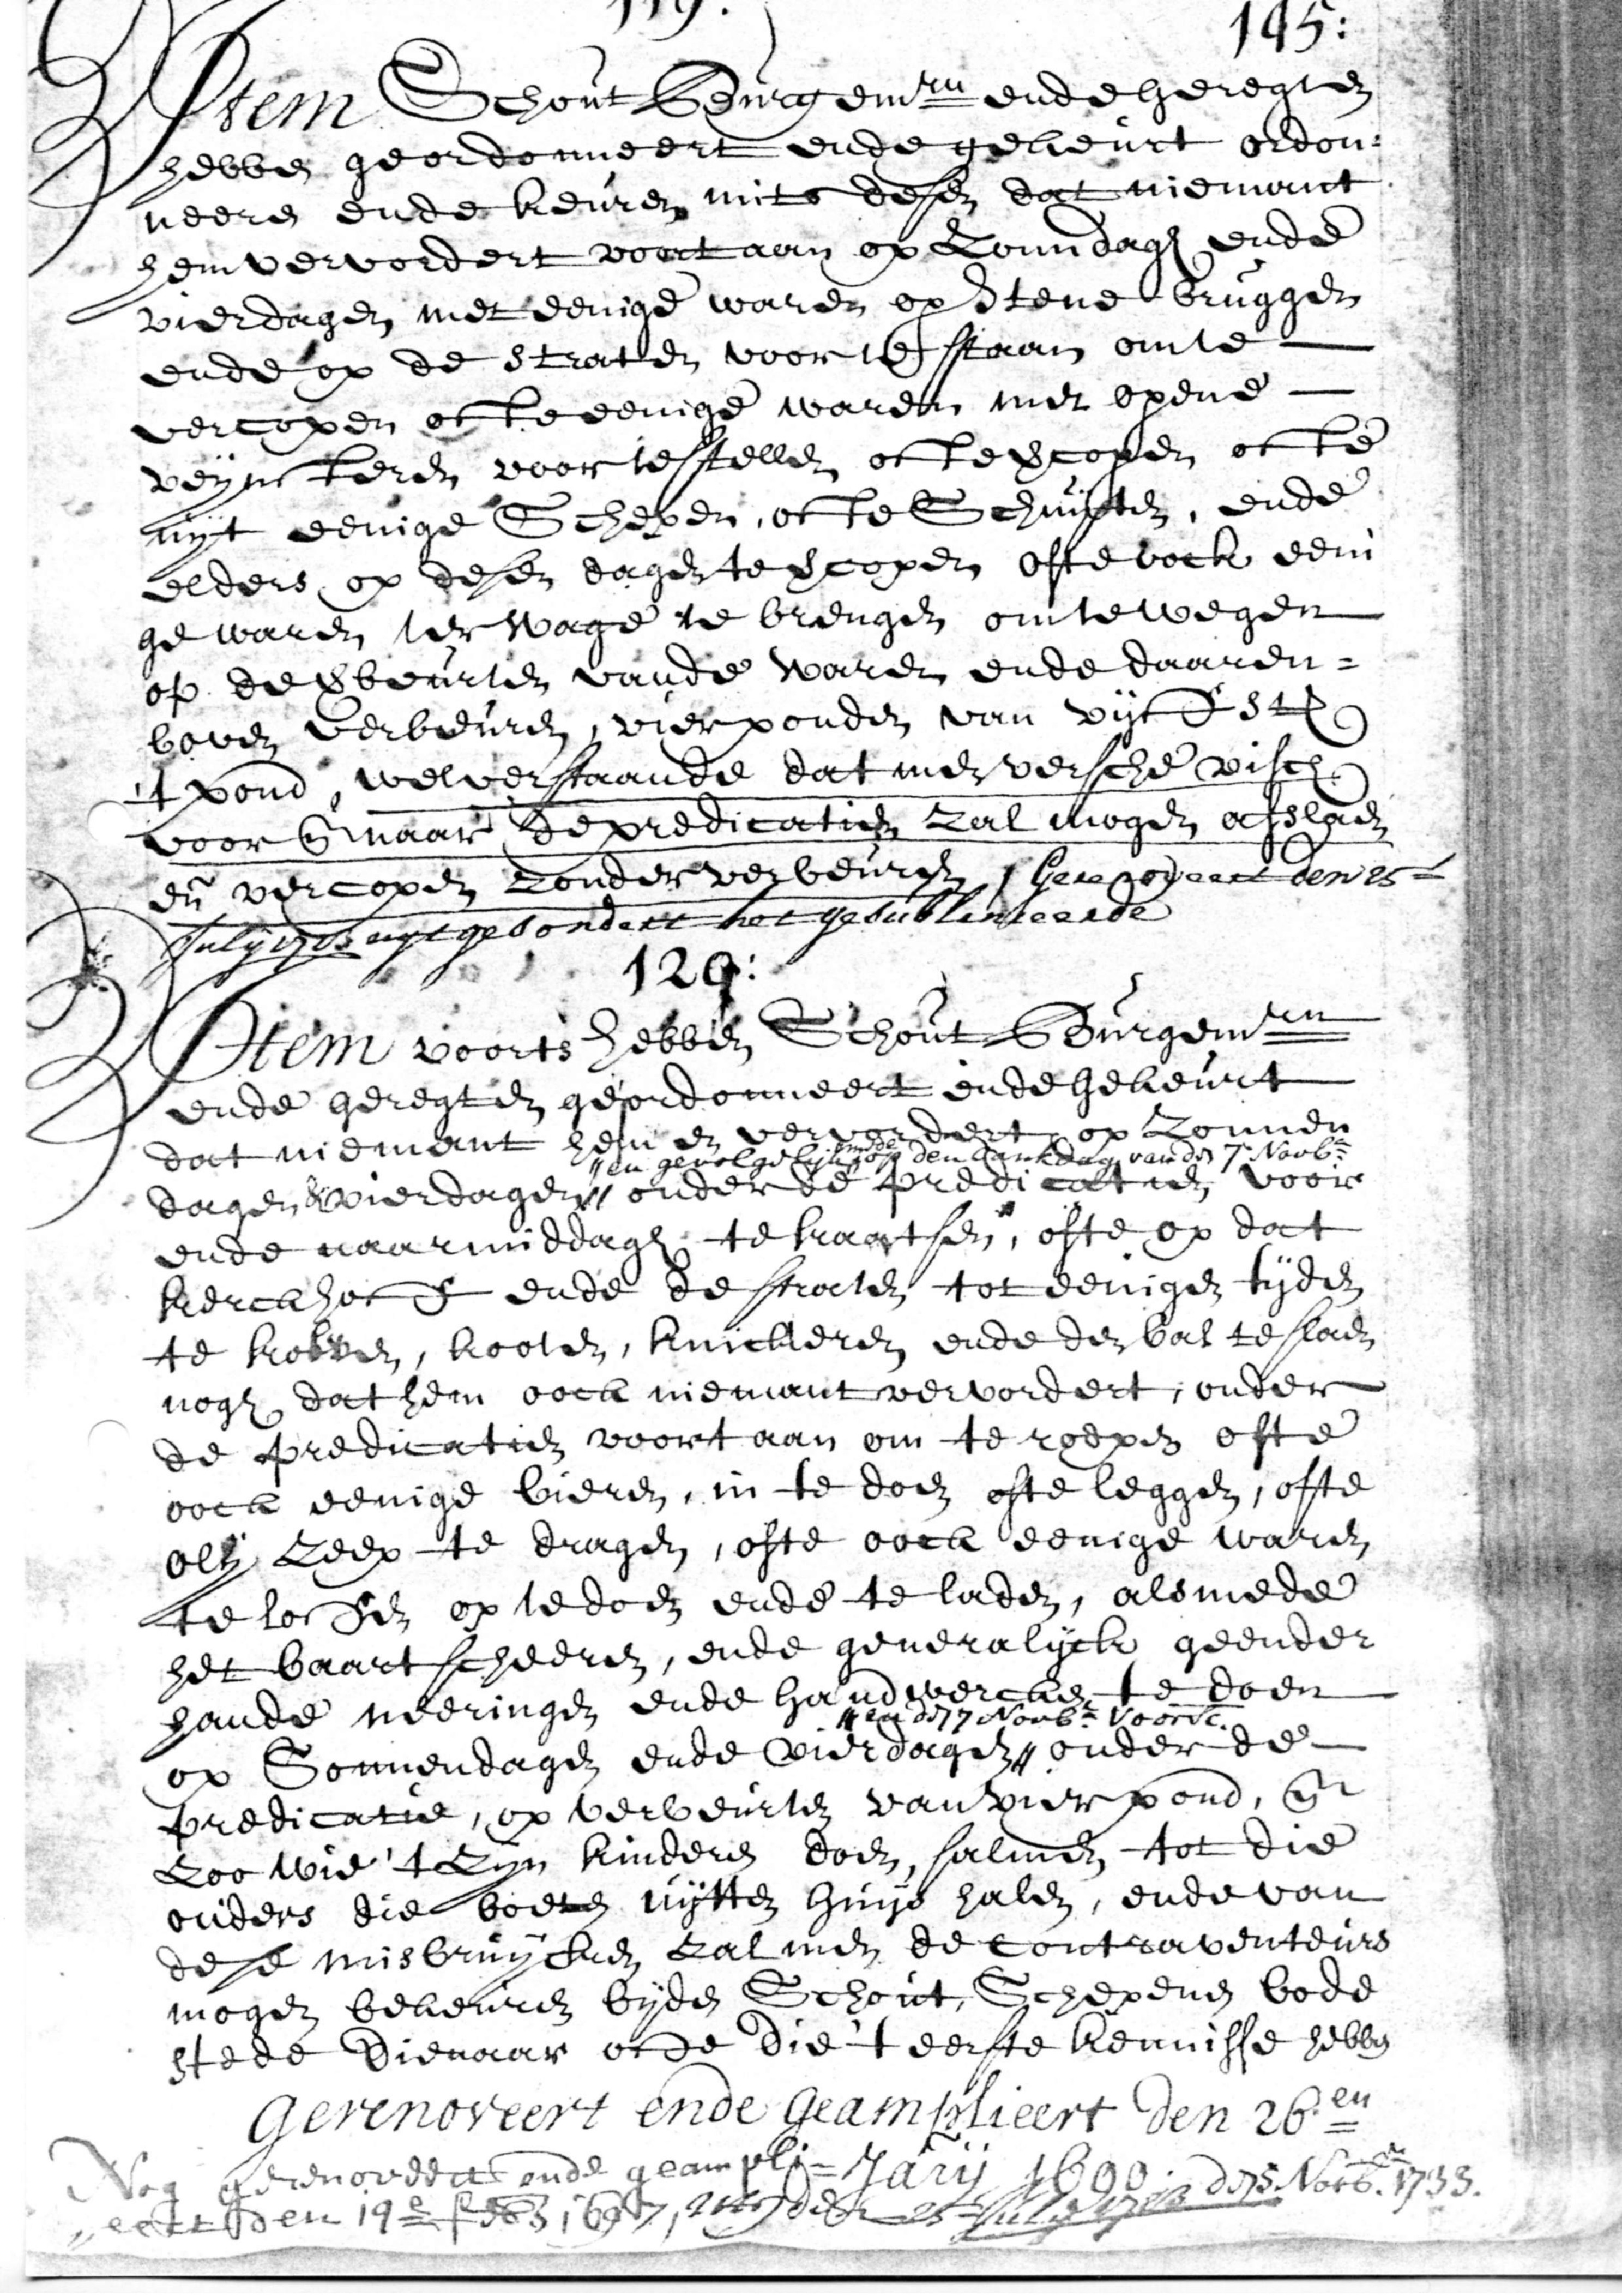 119.
145:
Item Schout Burgemrn ende geregten
hebben geordonneert ende gekeurt ordon=
neere ende keuren mits desen dat niemant
hem vervordert voortaan op Zonndagh ende
vierdagen met eenige waren op Stene bruggen
ende op de straten voor te staan om te —
vercopen ofte eenige waren met opene —
veynsteren voor te stellen ofte vercopen ofte
uijt eenige Schepen, ofte Schuijten, ende
elders op desen dagen te vercopen ofte oock eeni
ge waren ter Wage te brengen om te wegen
op de verbeurten vande Waren ende daaren=
boven verbeuren, vier ponden van vijff st
't pond, welverstaande dat men versche visch
voor en naar de predicatien zal mogen afslaen
en vercopen zonder verbeuren / Gerenoveert den 25e
July 1703 uijtgesondert het gesublinieerde
120:
Item voorts hebben Schout Burgemrn
ende geregten geordonneert ende gekeurt
dat niemant hem en vervordert op Zonnen
"en gevolgelijk mede op den dankdag van den 7 Novbr
dagen & vierdagen " onder de predicatien voor
ende naarmiddagh te kaatsen, ofte op dat
kerckhoff ende de straten tot eenigen tijden
te kolven, kooten, knickeren ende den bal te slaen
nogh dat hem oock niemant vervordert, onder
de predicatien voortaan om te roepen ofte
oock eenige bieren, in te doen ofte leggen, ofte
olij Zeep te dragen, ofte oock eenige waren
te lossen op te doen ende te laden, alsmede
het baart scheeren, ende generalijck geender
hande neeringen ende handwercken te doen
" en den 7 Novbr voorsc.
op Sonnendagen ende vierdagen " onder de —
predicatie, op verbeurten van vier pond, en
zoo wie 't zijn kinderen doen, salmen tot die
ouders die boeten uijtten huijs halen, ende van
dese misbruijcken zal men de contraventeurs
mogen bekeuren bijden Schout, Schepenen bode
stede Dienaar ofte die 't eerste kennisse hebben
Gerenoveert ende Geamplieert den 26en
Nog gerenoveert ende geampli= Jarij 1690. den 5 Novbr. 1733.
eert den 19e 1697, nog den 25 July 1703